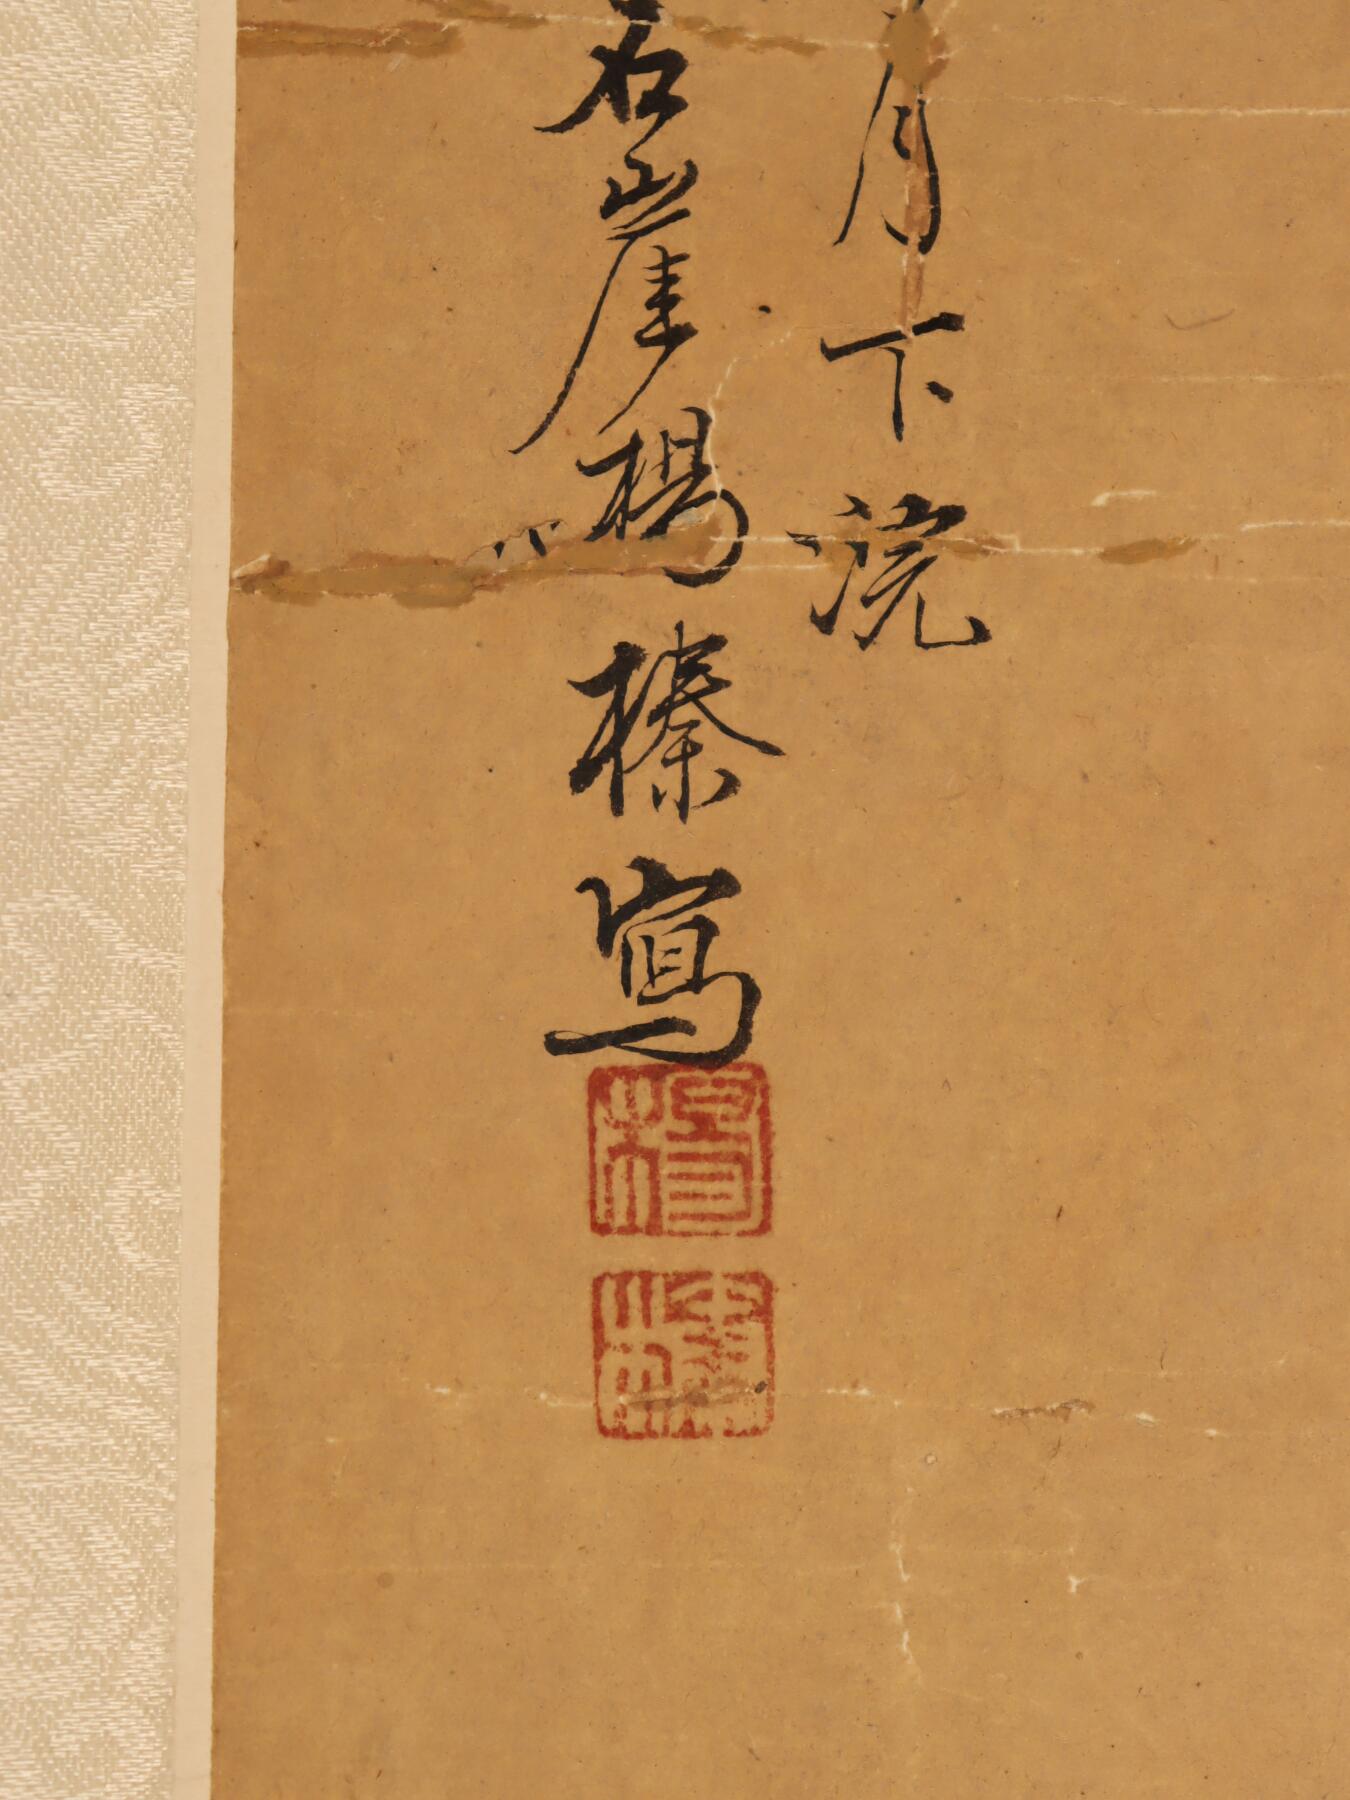 月下浣
石崖楊榛寫
楊
榛